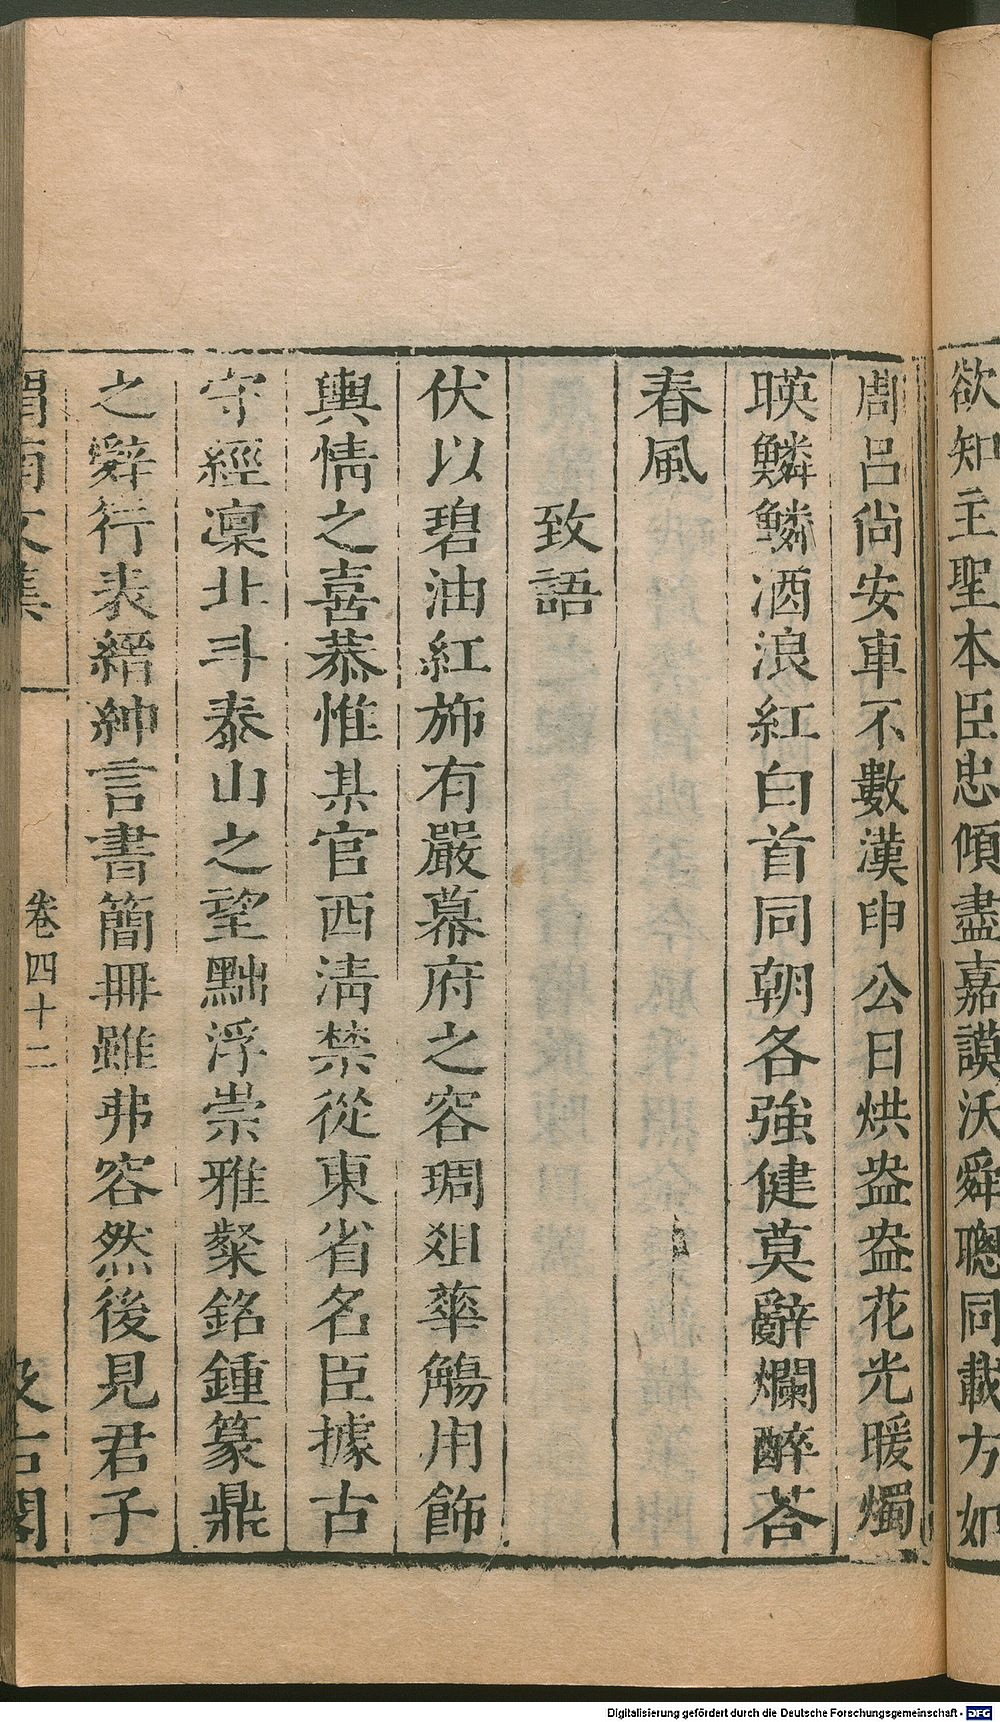 欲知主聖本臣忠傾盡嘉謨沃舜聰同載方如
周呂尙安車不數漢申公日烘盎盎花光暖燭
暎鱗鱗酒浪紅白首同朝各強健莫辭爛醉荅
春風
致語
伏以碧油紅斾有嚴幕府之容琱俎華觴用飾
輿情之喜恭惟某官西淸禁從東省名臣據古
守經凜北斗泰山之望黜浮崇雅粲銘鍾篆鼎
之辭行表縉紳言書簡冊雖弗容然後見君子
渭南文集
卷四十二
汲古閣
Digitalisierung gefördert durch die Deutsche Forschungsgemeinschaft - DFG